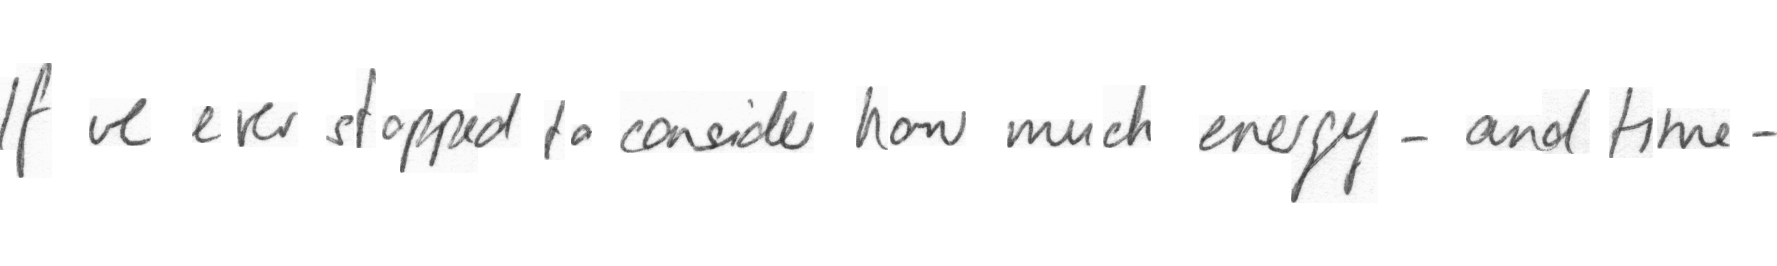 If we ever stopped to consider how much energy - and time -